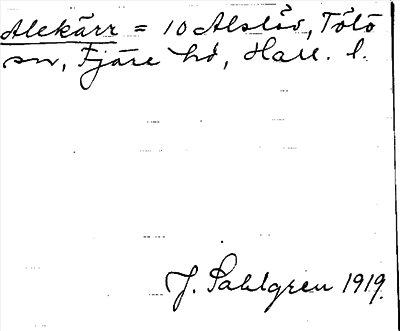 Alekärr = 10 Alslöv, Tölö
sn, Fjäre hd, Hall. l.
J. Sahlgren 1919.